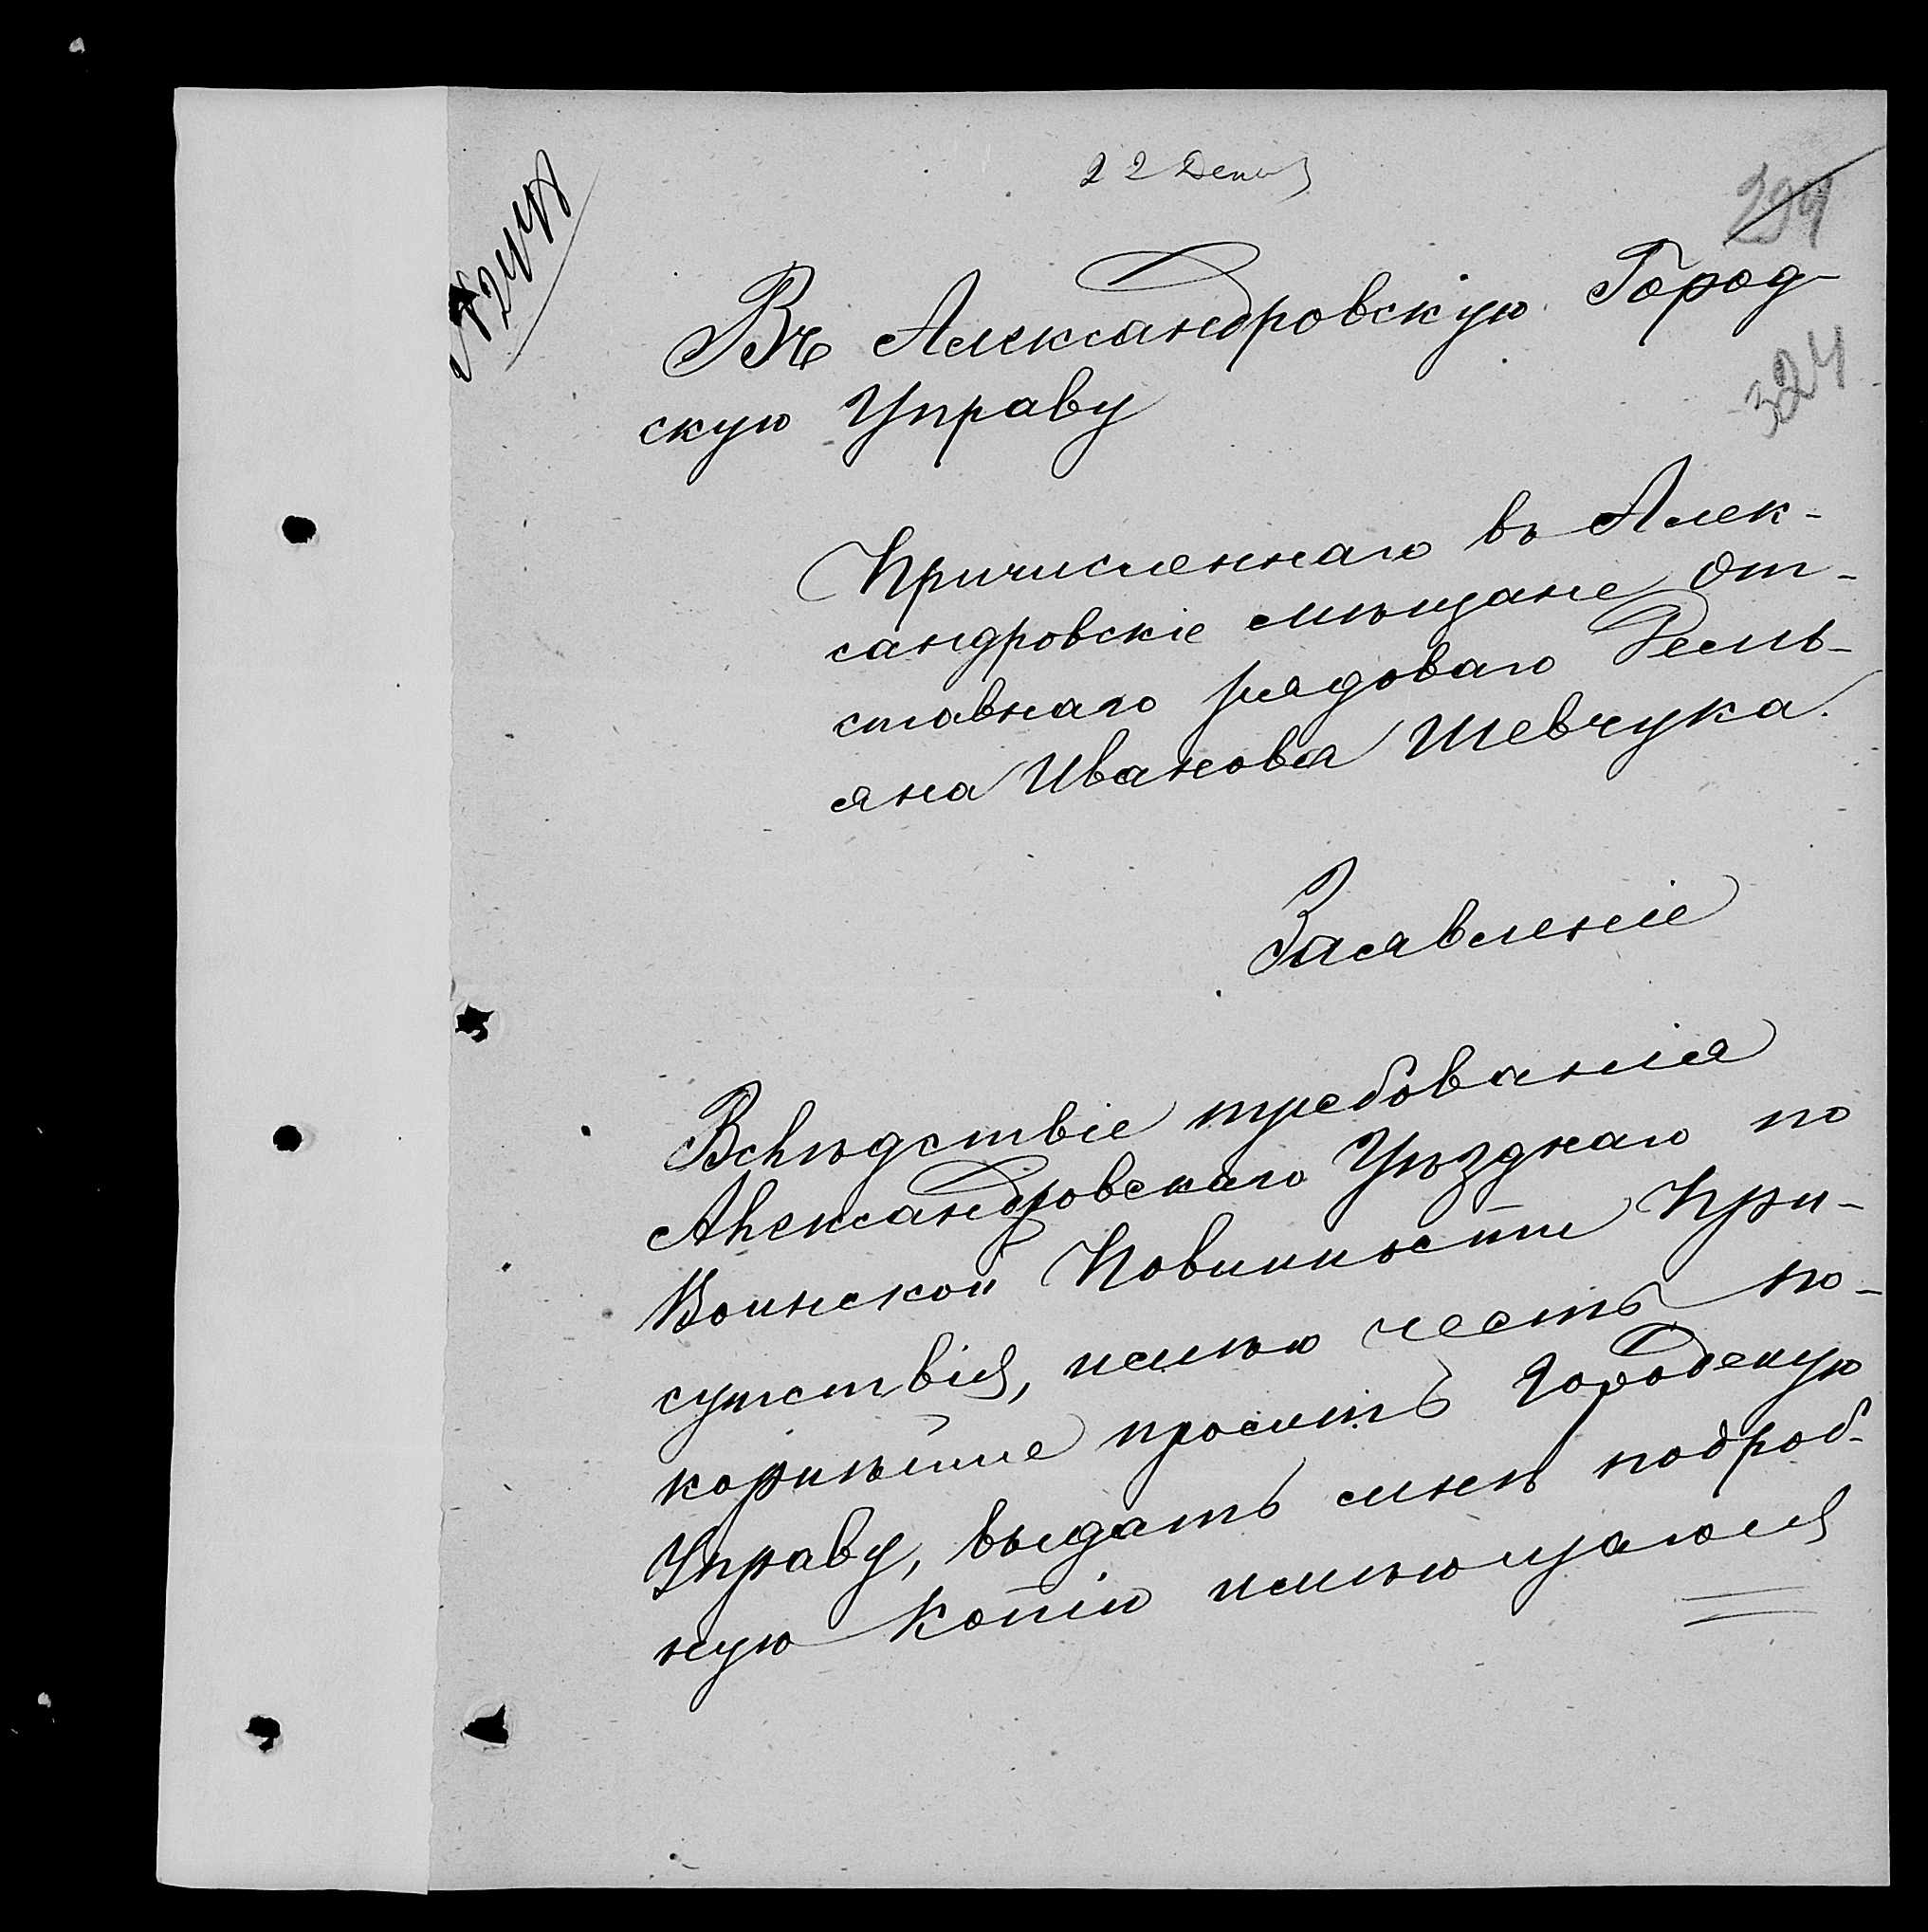 22 Дек
299
324
Въ Александровскую Город-
скую Управу
Причисленнаго въ Алек-
сандровскіе мѣщане От-
ставнаго рядоваго Демь-
яна Иванова Шевчука.
Заявленіе
Вслѣдствіе требованія
Александровскаго Уѣзднаго по
Воинской Повинности При-
сутствія, имѣю честь по-
корнѣйше просить Городскую
Управу, выдать мнѣ подроб-
ную копію имѣющагося